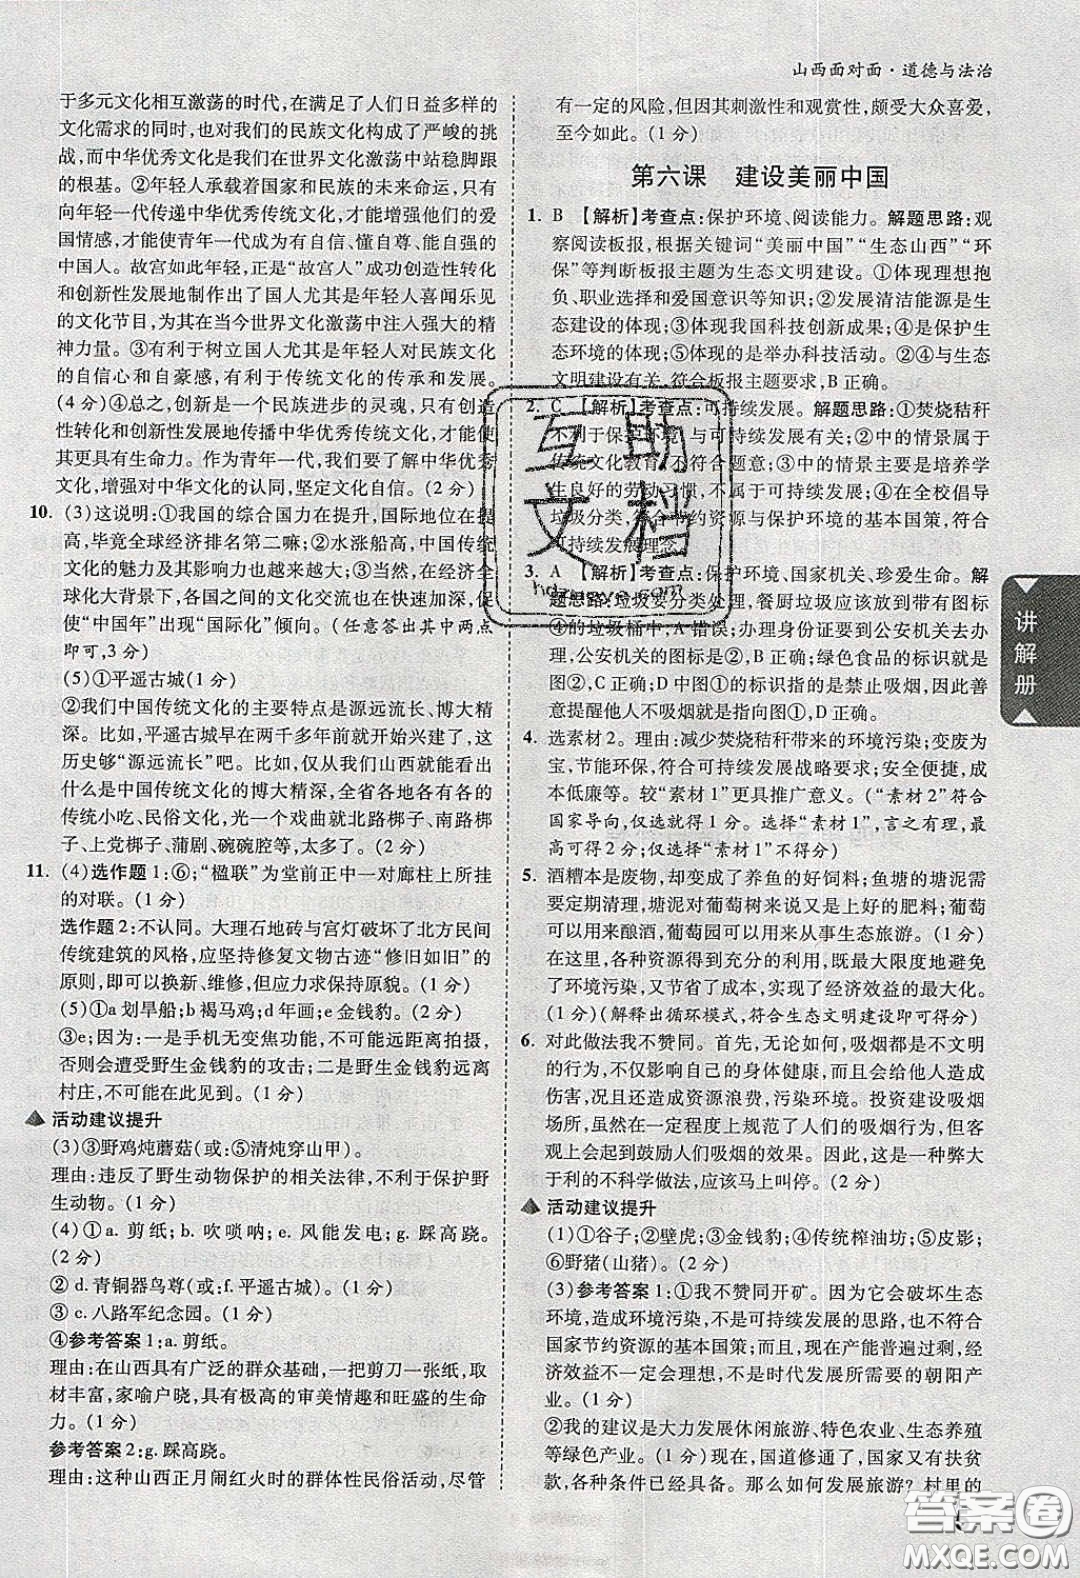 山西面对面·道德与法治
于多元文化相互激荡的时代,在满足了人们日益多样的
文化需求的同时,也对我们的民族文化构成了严峻的挑
战,而中华优秀文化是我们在世界文化激荡中站稳脚跟
的根基。②年轻人承载着国家和民族的未来命运,只有
向年轻一代传递中华优秀传统文化,才能增强他们的爱
国情感,才能使青年一代成为有自信、懂自尊、能自强的
中国人。故宫如此年轻,正是“故宫人”成功创造性转化
和创新性发展地制作出了国人尤其是年轻人喜闻乐见
的文化节目,为在当今世界文化激荡中注入强大的精
神力量。③有利于树立国人尤其是年轻人对民族文化
的自信心和自豪感,有利于传统文化的传播和发展。
(4 分)④总之,创新是一个民族进步的灵魂,只有创造
性转化和创新性发展地传播中华优秀传统文化,才能使
其焕发出强大生命力。作为青年一代,我们要了解中华优秀
文化,增强对中华文化的认同,坚定文化自信。(2 分)
10. (3)这说明:①我国的综合国力在提升,国际地位在提
高,毕竟全球经济排名第二嘛;②水涨船高,中国传统
文化的魅力及其影响力也越来越大;③当然,在经济全
球化大背景下,各国之间的文化交流也在快速加深,促
使“中国年”出现“国际化”倾向。(任意答出其中两点
即可,3 分)
(5)①平遥古城(1 分)
②我们中国传统文化的主要特点是源远流长、博大精
深。比如,平遥古城早在两千多年前就开始兴建了,这
历史够“源远流长”吧。比如,我们从山西就能看出
什么是中国传统文化的博大精深,全省各地各有各的
传统小吃、民俗文化,光一个戏曲就北路梆子、南路梆
子、上党梆子、蒲剧、碗碗腔等,太多了。(2 分)
11. (4)选作题 1:⑥;“楹联”为堂前正中一对廊柱上所挂
的对联。(1 分)
选作题 2:不认同。大理石地砖与宫灯破坏了北方民间
传统建筑的风格,应坚持修复文物古迹“修旧如旧”的
原则,即可以换新、维修,但应力求保持原貌。(1 分)
(5)①a 划旱船;b 褐马鸡;d 年画;e 金钱豹。(2 分)
③e;因为:一是手机无变焦功能,不可能远距离拍摄,
否则会遭受野生金钱豹的攻击;二是野生金钱豹远离
村庄,不可能在此见到。(2 分)
活动建议提升
(3)③野鸡炖蘑菇(或:⑤清炖穿山甲)。(1 分)
理由:违反了野生动物保护的相关法律,不利于保护野
生动物。(1 分)
(4)①a. 剪纸; b. 吹唢呐; e. 风能发电; g. 踩高跷。
(2 分)
② d. 青铜器鸟尊(或:f. 平遥古城)。(1 分)
③ c. 八路军纪念园。(1 分)
④参考答案 1:a. 剪纸。
理由:在山西具有广泛的群众基础,一把剪刀一张纸,取
材丰富,家喻户晓,具有极高的审美情趣和旺盛的生命
力。(1 分)
参考答案 2:g. 踩高跷。
理由:这种山西正月闹红火时的群体性民俗活动,尽管
有一定的风险,但因其刺激性和观赏性,颇受大众喜爱,
至今如此。(1 分)
第六课 建设美丽中国
1. B 【解析】考查点:保护环境、阅读能力。解题思路:观
察阅读板报,根据关键词“美丽中国”“生态山西”“环
保”等判断板报主题为生态文明建设。①体现理想抱
负、职业选择和爱国意识等知识;②发展清洁能源是生
态建设的体现;③体现我国科技创新成果;④是保护生
态环境的体现;⑤体现的是举办科技活动。②④与生态
文明建设有关,符合板报主题要求,B 正确。
2. C 【解析】考查点:可持续发展。解题思路:①焚烧秸秆
不利于保护环境,与可持续发展有关;②中的情景属于
传统文化教育,不符合题意;③中的情景是培养学
生良好的劳动习惯,不属于可持续发展;④在全校倡导
垃圾分类,符合节约资源与保护环境的基本国策,符合
可持续发展理念。
3. A 【解析】考查点:保护环境、国家机关、珍爱生命。解
题思路:垃圾要分类处理,餐厨垃圾应该放到带有图标
④的垃圾桶中,A 错误;办理身份证要到公安机关去办
理,公安机关的图标是图②,B 正确;绿色食品的标识是
图③,C 正确;D 中图①的标识指的是禁止吸烟,因此善
意提醒他人不吸烟的标识是图①,D 正确。
4. 选素材 2。理由:减少焚烧秸秆带来的环境污染;变废为
宝,节能环保,符合可持续发展战略要求;安全便捷,成
本低廉等。较“素材 1”更具推广意义。(“素材 2”符合
国家导向,容易得满分。选择“素材 1”,言之有理,最
高可得 2 分;仅选择,无理由,不得分)(3 分)
5. 酒糟本是废物,却变成了养鱼的好饲料;鱼塘的塘泥需
要定期清理,塘泥对葡萄树来说是上好的肥料;葡萄可
以用来酿酒,葡萄园可以用来从事生态旅游。(1 分)
在这里,各种资源得到充分的利用,既最大限度地避免
了环境污染,又节省了成本,实现了经济效益的最大化。
(1 分)(解释出循环模式,符合生态文明建设即可得分)
6. 对此做法我不赞同。首先,无论如何,吸烟都是不文明
的行为,不仅影响自己的身体健康,而且会影响他人健
康,况且还造成资源浪费,污染环境。投资建设吸烟
场所,并在一定程度上规范了人们的吸烟行为,但
同时也会起到鼓励人们吸烟的效果。因此,这是一种弊大
于利的不科学做法,应该马上叫停。(2 分)
活动建议提升
(1)①谷子;②壁虎;③金钱豹;④传统榨油坊;⑤皮影;
⑥野猪(山猪)。(3 分)
(3)参考答案 1:①我不赞同开矿。因为它会破坏生态
环境,造成环境污染,是不可持续发展的思路,不符合
国家节约资源的基本国策;产能普遍过剩,开矿带来的
经济效益不一定会理想,不是时代发展需要的朝阳产业。
(1 分)
②我的建议是大力发展休闲旅游、特色农业、生态养殖
等绿色产业。(1 分)现在,国道修通了,国家又有扶贫
款,各种条件已经具备。那么如何发展旅游?村里的
讲解册
互助文档
hdzuoye.com
答案圈
MXQE.COM